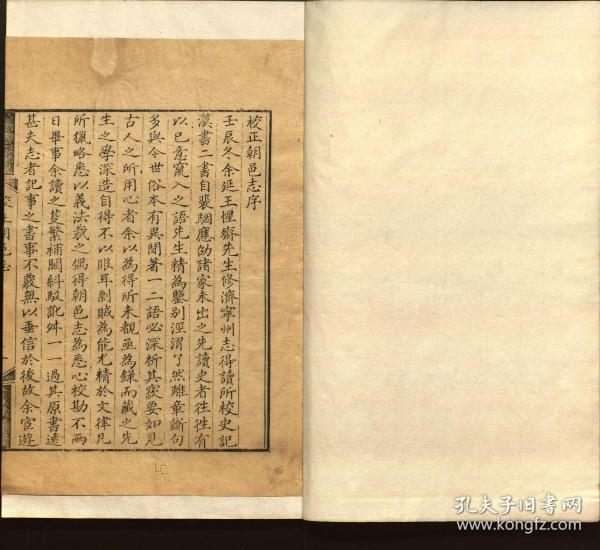 校正朝邑志序
壬辰冬余延王惺齋先生修濟寧州志得讀所校史記
漢書二書自裴駰應劭諸家未出之先讀史者徃徃有
以已意竄入之語先生精為鑒别涇渭了然離章斷句
多與今世俗本有異間著一二語必深析其窽要如見
古人之所用心者余以為得所未覩亟為錄而藏之先
生之學深造自得不以眼耳剽賊為能尤精於文律凡
所獵略悉以義法裁之偶得朝邑志為悉心校勘不兩
日畢事余讀之芟繁補闕糾駁訛舛一一過其原書逺
甚夫志者記事之書事不覈無以垂信於後故余宦遊
校正朝邑志
孔夫子旧书网
www.kongfz.com